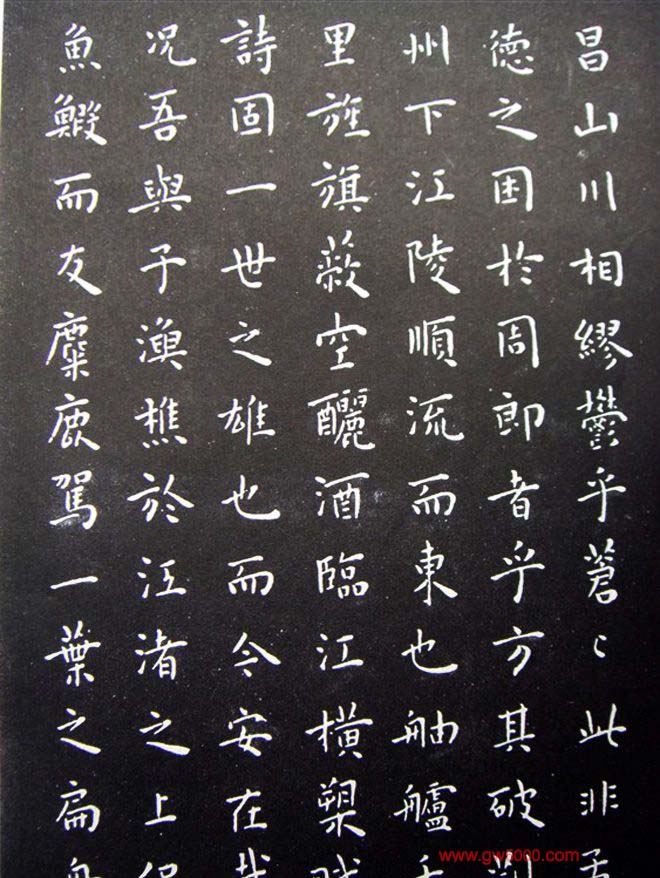 昌山川相繆鬱乎蒼〻此非
德之困於周郎者乎方其破
州下江陵順流而東也舳艫
里旌旗蔽空釃酒臨江橫槊
詩固一世之雄也而今安在
况吾與子漁樵於江渚之上
魚鰕而友麋鹿駕一葉之扁
www.gw5000.com